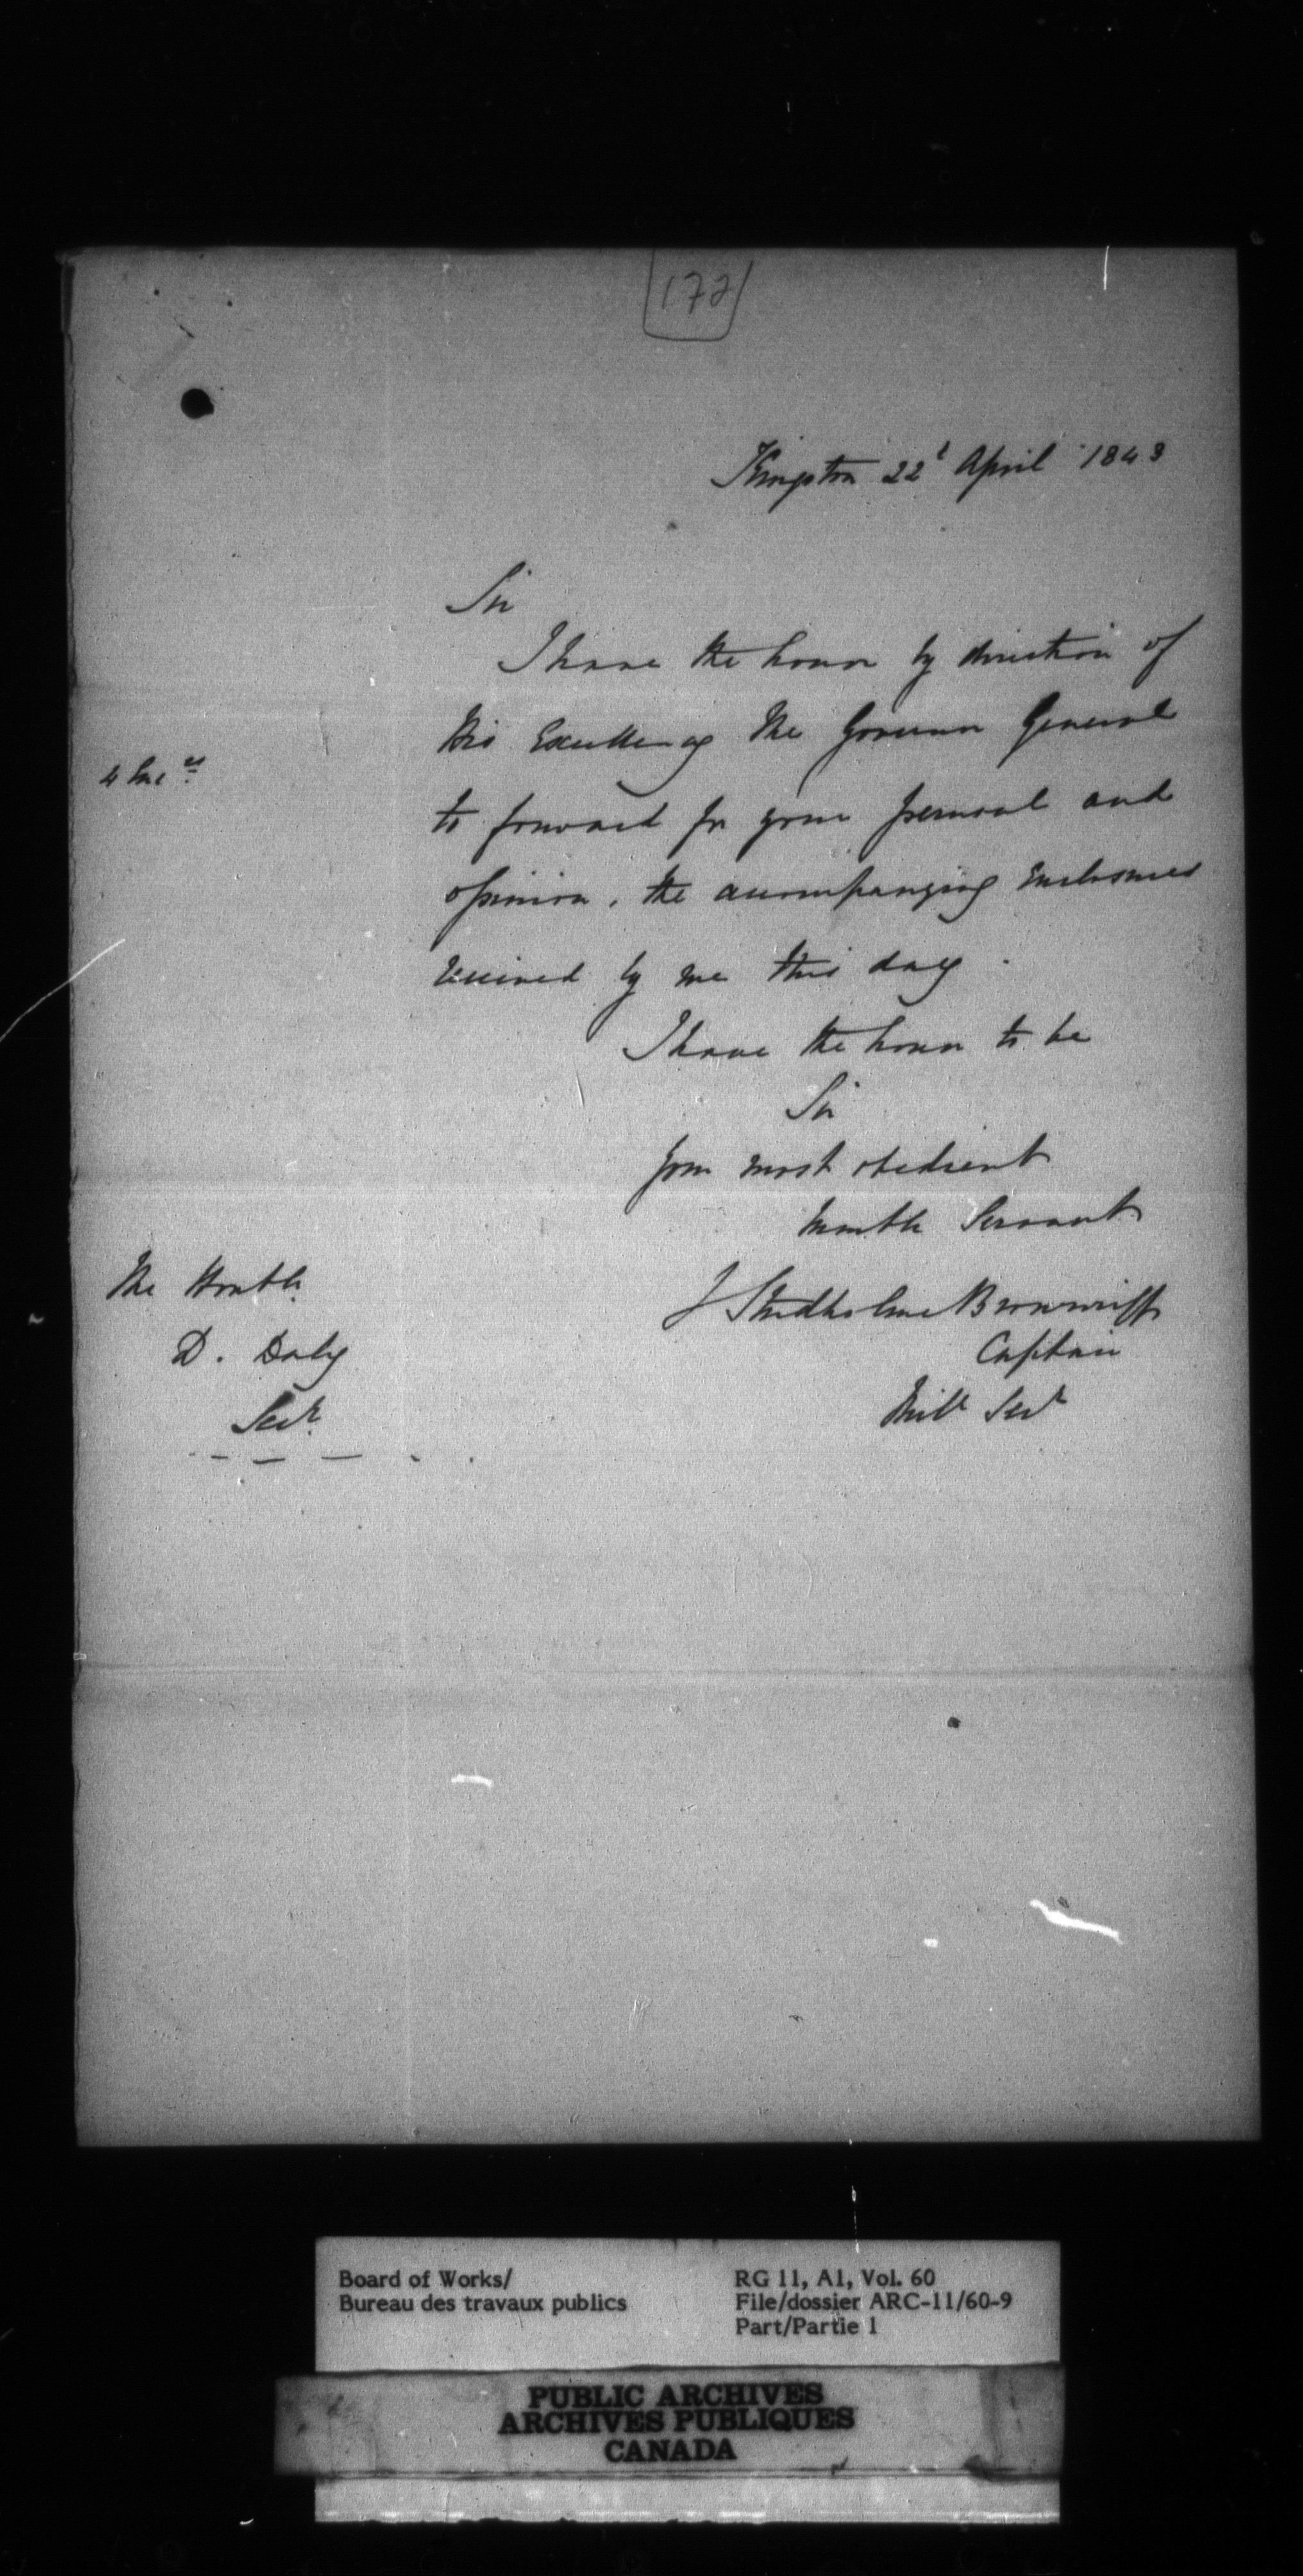 172
Kingston 22d April 1843
Sir
I have the honor by direction of
His Excellency the Governor General
4 Incs
to forward for your perusal and
opinion, the accompanying Enclosures
received by me this day.
I have the honor to be
Sir
Your most obedient
humble Servant
The Honble
J Studholme Brownrigg
D. Daly
Captain
Secr.
Mily Secy
Board of Works/
Bureau des travaux publics
RG 11, A1, Vol. 60
File/dossier ARC-11/60-9
Part/Partie 1
PUBLIC ARCHIVES
ARCHIVES PUBLIQUES
CANADA